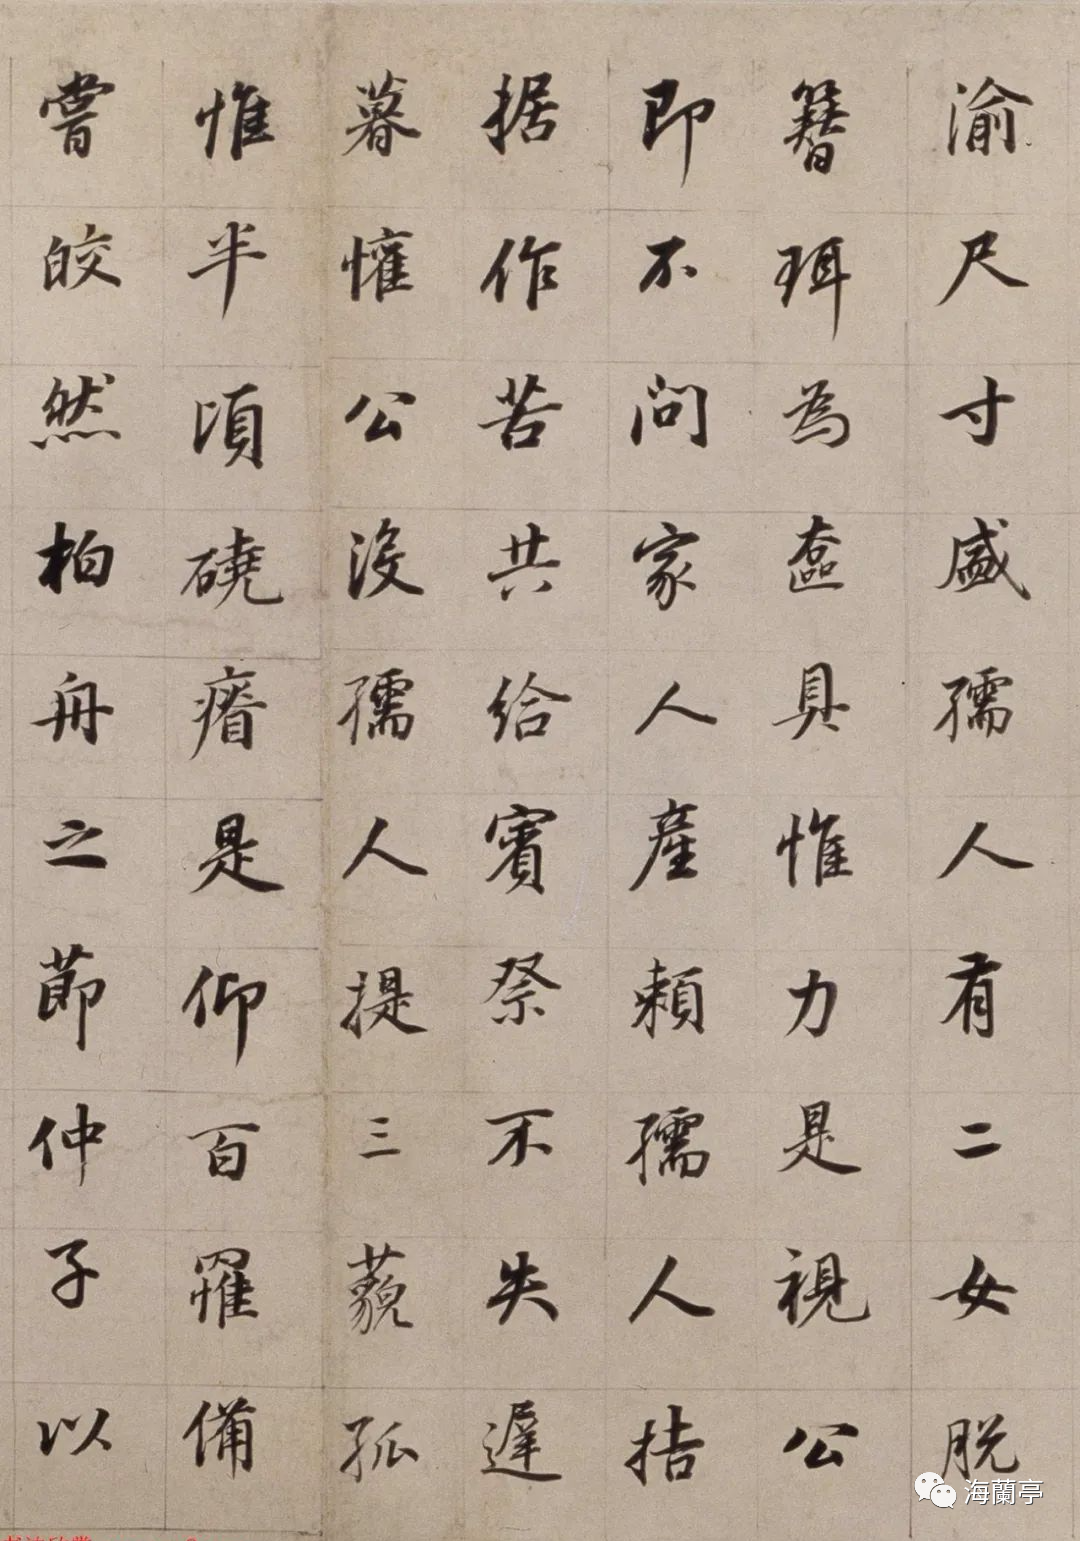 渝尺寸盛孺人有二女脱
簪珥為奩具惟力是視公
即不問家人産賴孺人拮
据作苦共給賓祭不失遅
暮懽公没孺人提三藐孤
惟半頃磽瘠是仰百罹備
嘗皎然柏舟之莭仲子以
海蘭亭